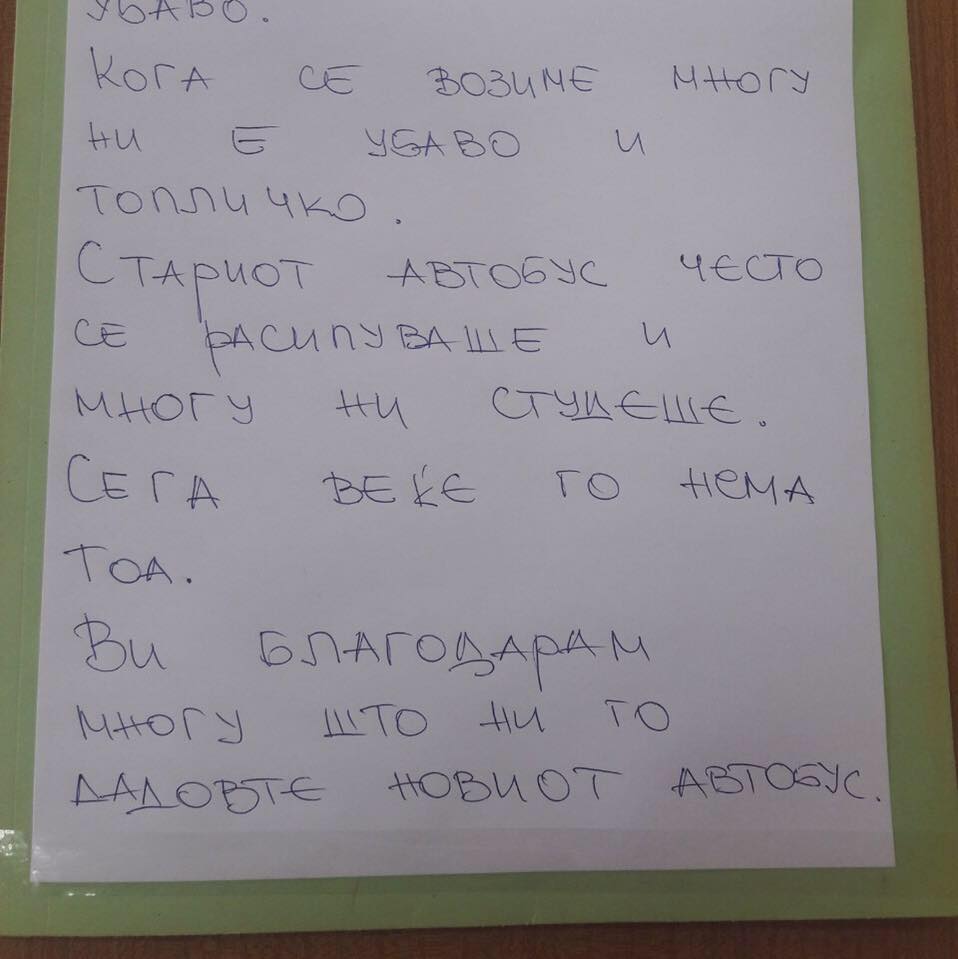 УБАВО.
КОГА СЕ ВОЗИМЕ МНОГУ
НИ Е УБАВО И
ТОПЛИЧКО.
СТАРИОТ АВТОБУС ЧЕСТО
СЕ РАСИПУВАШЕ И
МНОГУ НИ СТУДЕШЕ.
СЕГА ВЕЌЕ ГО НЕМА
ТОА.
ВИ БЛАГОДАРАМ
МНОГУ ШТО НИ ГО
ДАДОВТЕ НОВИОТ АВТОБУС.